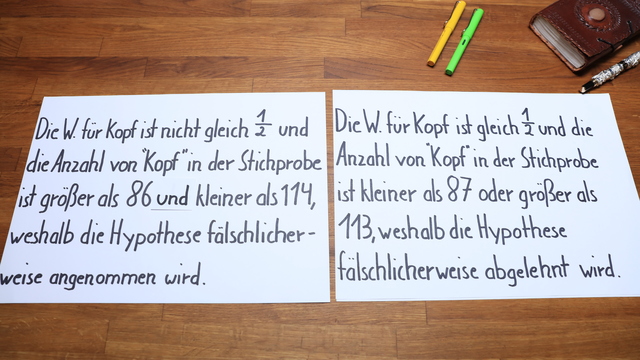 Die W. für Kopf ist nicht gleich 1/2 und
die Anzahl von "Kopf" in der Stichprobe
ist größer als 86 und kleiner als 114,
weshalb die Hypothese fälschlicher-
weise angenommen wird.
Die W. für Kopf ist gleich 1/2 und die
Anzahl von "Kopf" in der Stichprobe
ist kleiner als 87 oder größer als
113, weshalb die Hypothese
fälschlicherweise abgelehnt wird.